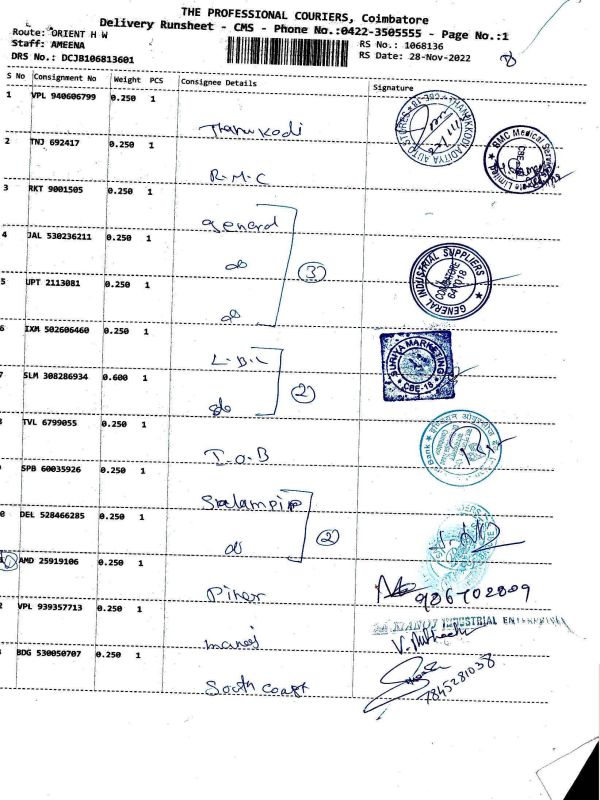 THE PROFESSIONAL COURIERS, Coimbatore
Delivery Runsheet - CMS - Phone No.:0422-3505555 - Page No.:1
Route: ORIENT H W
Staff: AMEENA
DRS No.: DCJB106813601
RS No.: 1068136
RS Date: 28-Nov-2022
S No Consignment No Weight PCS Consignee Details Signature
1 VPL 940606799 0.250 1
Thanukodi
THANUKODI ADITYA AUTO STORES CBE-18
2 TNJ 692417 0.250 1
R.M.C
BMC Medical Services Private Limited CBE
3 RKT 9001505 0.250 1
general
4 JAL 530236211 0.250 1
do
3
GENERAL INDUSTRIAL SUPPLIERS COIMBATORE 641018
5 UPT 2113081 0.250 1
do
6 IXM 502606460 0.250 1
L.B.L
SURIYA MARKETING CBE-18
7 SLM 308286934 0.600 1
do
2
TVL 6799055 0.250 1
I.O.B
Bank
SPB 60035926 0.250 1
0 DEL 528466285 0.250 1
do
2
AMD 25919106 0.250 1
986702809
2 VPL 939357713 0.250 1
manoj
MANOJ INDUSTRIAL ENTERPRISES
BDG 530050707 0.250 1
South coast
7845281038